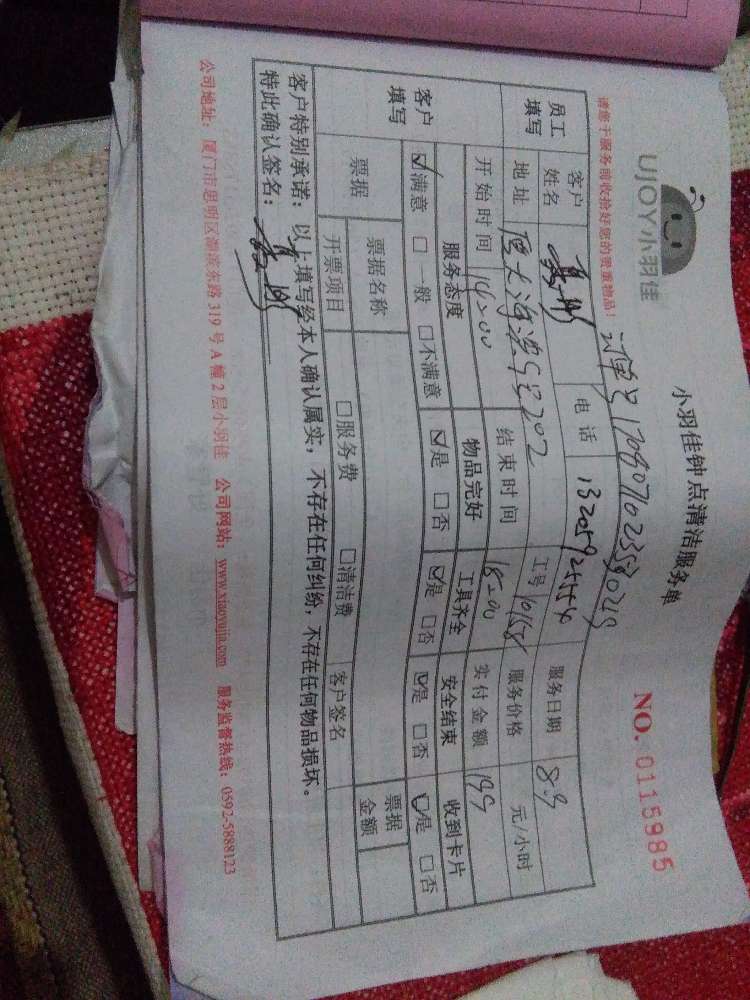 UJOY小羽佳
小羽佳钟点清洁服务单
NO. 0115985
请您于服务前收拾好您的贵重物品！
员工填写 客户姓名 电话 服务日期 8.9
地址 工号 服务价格 元/小时
开始时间 14:00 结束时间 18:00 实付金额 199
客户填写 服务态度 物品完好 工具齐全 安全结束 收到卡片
☑满意 □一般 □不满意 ☑是 □否 ☑是 □否 ☑是 □否 ☑是 □否
票据 票据名称 客户签名 票据金额
开票项目 □服务费 □清洁费
客户特别承诺：以上填写经本人确认属实，不存在任何纠纷，不存在任何物品损坏。
特此确认签名：
公司地址：厦门市思明区湖滨东路319号A幢2层小羽佳 公司网站：www.xiaoyujia.com 服务监督热线：0592-5888123